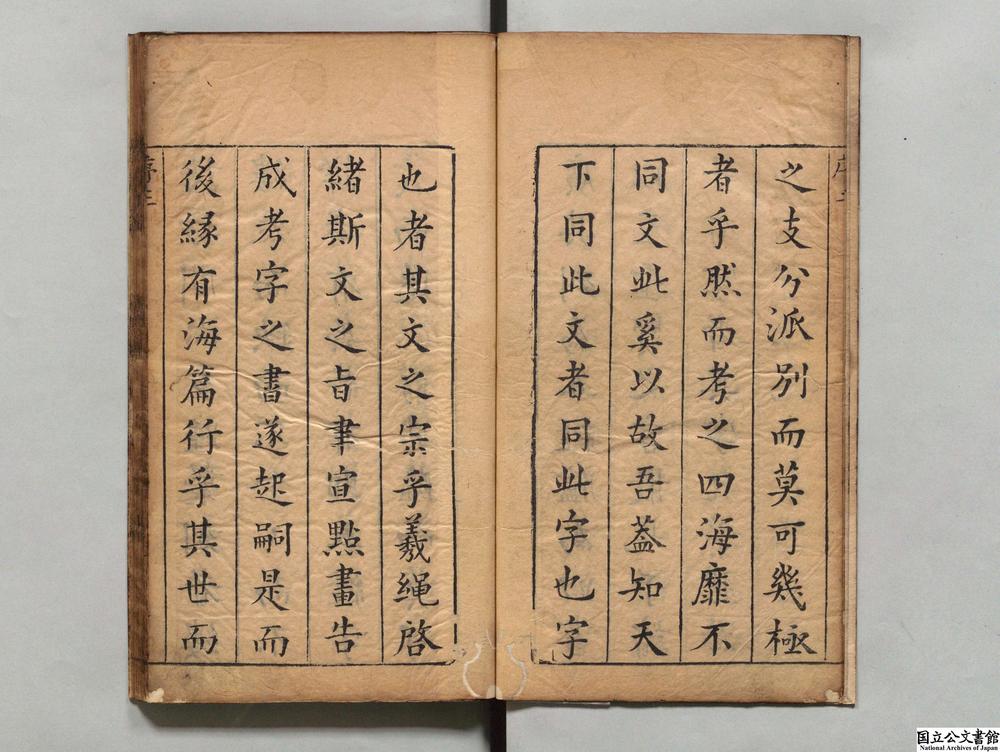 之支分派別而莫可幾極
者乎然而考之四海靡不
同文此奚以故吾葢知天
下同此文者同此字也字
也者其文之宗乎羲繩啓
緒斯文之旨聿宣點畫告
成考字之書遂起嗣是而
後緣有海篇行乎其世而
国立公文書館
National Archives of Japan